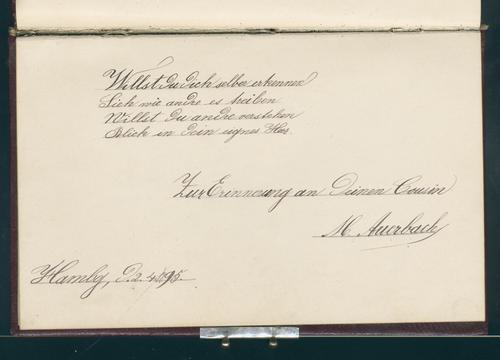 Willst du dich selber erkennen
Sieh wie andre es treiben
Willst du andre verstehen
Blick in dein eignes Herz
Zur Erinnerung an Deinen Cousin
M. Auerbach
Hambg, d. 2. 4. 95.